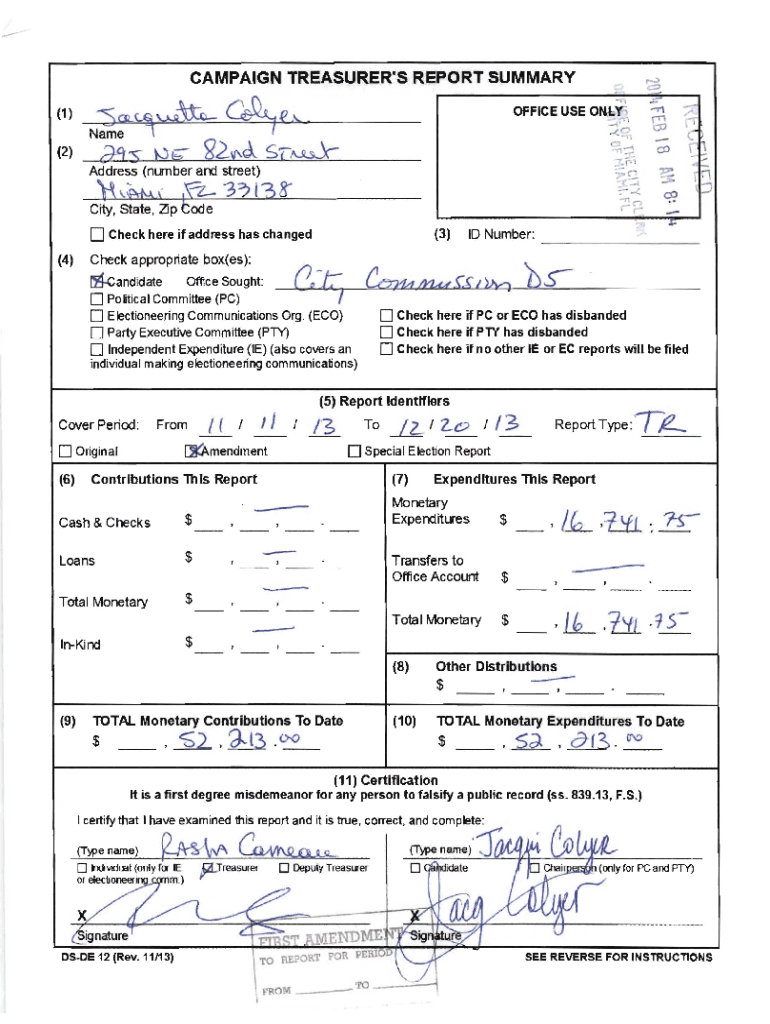 CAMPAIGN TREASURER'S REPORT SUMMARY
(1) Jacquetta Colyer
Name
OFFICE USE ONLY
RECEIVED
2014 FEB 18 AM 8:14
OFFICE OF THE CITY CLERK
CITY OF MIAMI, FL
(2) 295 NE 82nd Street
Address (number and street)
Miami, FL 33138
City, State, Zip Code
Check here if address has changed
(3) ID Number:
(4) Check appropriate box(es):
Candidate Office Sought: City Commission D5
Political Committee (PC)
Electioneering Communications Org. (ECO)
Party Executive Committee (PTY)
Independent Expenditure (IE) (also covers an
individual making electioneering communications)
Check here if PC or ECO has disbanded
Check here if PTY has disbanded
Check here if no other IE or EC reports will be filed
(5) Report Identifiers
Cover Period: From 11 / 11 / 13 To 12 / 20 / 13 Report Type: TR
Original Amendment Special Election Report
(6) Contributions This Report
Cash & Checks $ __ , — , __ . __
Loans $ __ , — , __ . __
Total Monetary $ __ , — , __ . __
In-Kind $ __ , — , __ . __
(7) Expenditures This Report
Monetary
Expenditures $ __ , 16 , 741 . 75
Transfers to
Office Account $ __ , — , __ . __
Total Monetary $ __ , 16 , 741 . 75
(8) Other Distributions
$ __ , — , __ . __
(9) TOTAL Monetary Contributions To Date
$ __ , 52 , 213 . 00
(10) TOTAL Monetary Expenditures To Date
$ __ , 52 , 213 . 00
(11) Certification
It is a first degree misdemeanor for any person to falsify a public record (ss. 839.13, F.S.)
I certify that I have examined this report and it is true, correct, and complete:
(Type name) Rasha Cameau
Individual (only for IE Treasurer Deputy Treasurer
or electioneering comm.)
X
Signature
(Type name) Jacqui Colyer
Candidate Chairperson (only for PC and PTY)
X Jacq Colyer
Signature
FIRST AMENDMENT
TO REPORT FOR PERIOD
FROM ____ TO ____
DS-DE 12 (Rev. 11/13)
SEE REVERSE FOR INSTRUCTIONS